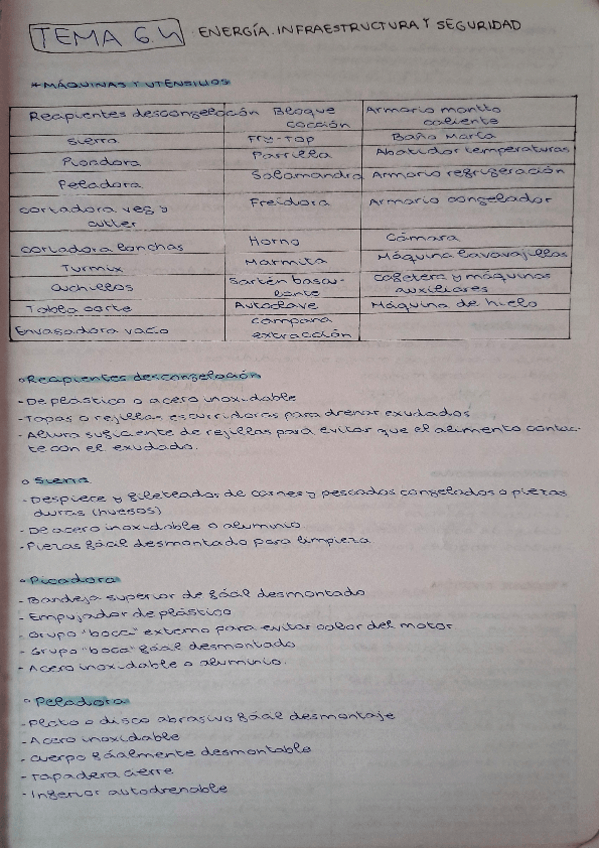 TEMA 6.4 · ENERGÍA. INFRAESTRUCTURA Y SEGURIDAD
* MÁQUINAS Y UTENSILIOS
Recipientes descongelación Bloque cocción Armario mantto caliente
Sierra Fry-Top Baño María
Picadora Parrilla Abatidor temperaturas
Peladora Salamandra Armario refrigeración
cortadora veg y cutter Freidora Armario congelador
cortadora lonchas Horno Cámara
Turmix Marmita Máquina lavavajillas
cuchillos Sartén bascu-lante Cafetera y máquinas auxiliares
Tabla corte Autoclave Máquina de hielo
Envasadora vacío campana extracción
Recipientes descongelación
- De plástico o acero inoxidable
- Tapas o rejillas escurridoras para drenar exudados
- Altura suficiente de rejillas para evitar que el alimento contac-
te con el exudado.
Sierra
- Despiece y fileteados de carnes y pescados congelados o piezas
duras (huesos)
- De acero inoxidable o aluminio.
- Piezas fácil desmontado para limpieza
Picadora
- Bandeja superior de fácil desmontado
- Empujador de plástico
- Grupo "boca" externo para evitar calor del motor
- Grupo "boca" fácil desmontado
- Acero inoxidable o aluminio.
Peladora
- Plato o disco abrasivo fácil desmontaje
- Acero inoxidable
- cuerpo fácilmente desmontable
- Tapadera cierre
- Inferior autodrenable